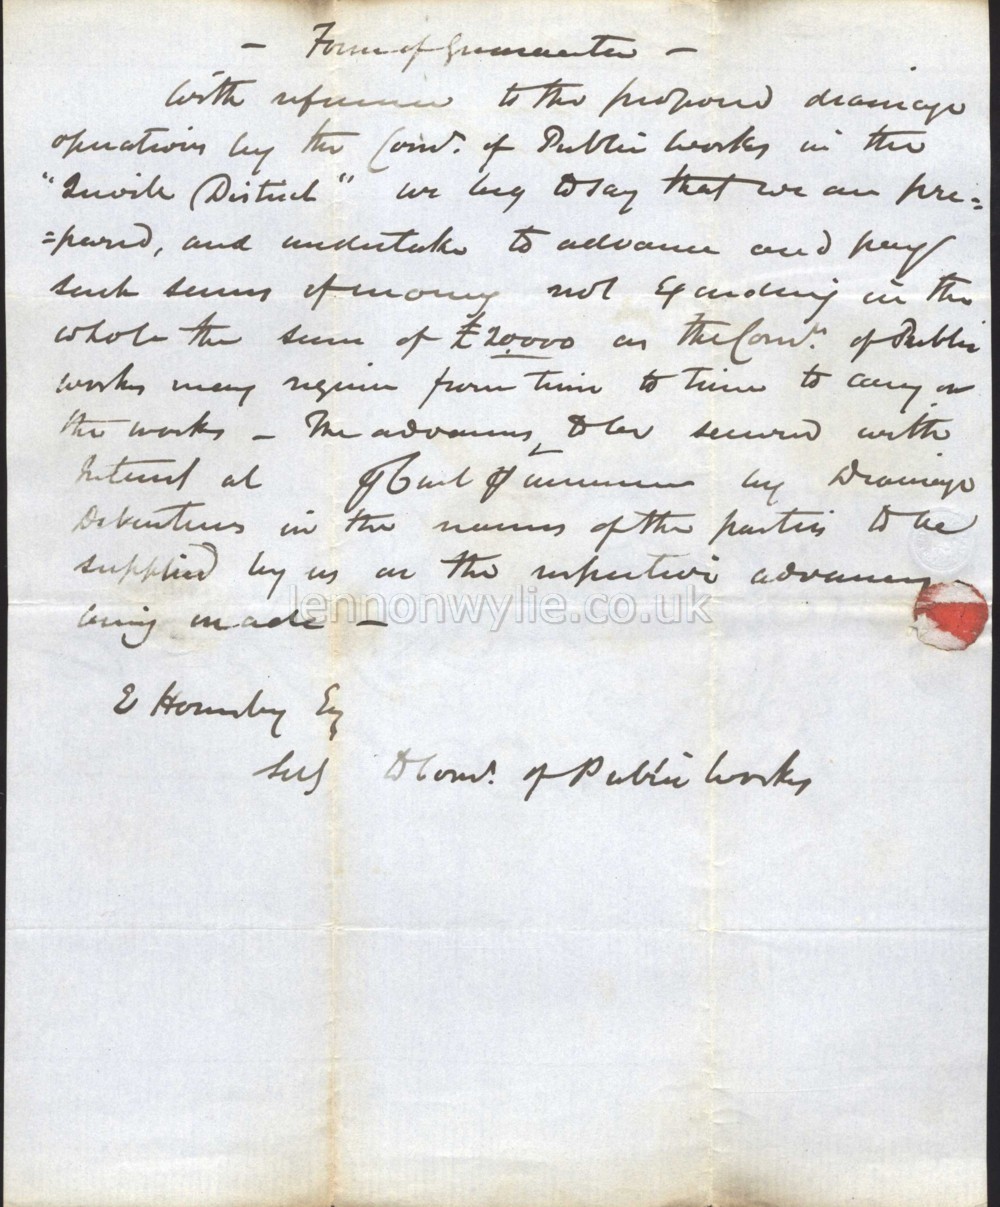 — Form of Guarantee —
With reference to the proposed drainage
operations by the Comrs. of Public Works in the
" District" we beg to say that we are pre=
=pared, and undertake to advance and pay
such sums of money not exceeding in the
whole the sum of £20,000 as the Comrs. of Public
works may require from time to time to carry on
the works — The advances to be secured with
Interest at P Cent P annum by Drainage
Debentures in the names of the parties to be
supplied by us on the respective advances
being made —
lennonwylie.co.uk
E Hornsby Esq
Secy to Comrs. of Public Works